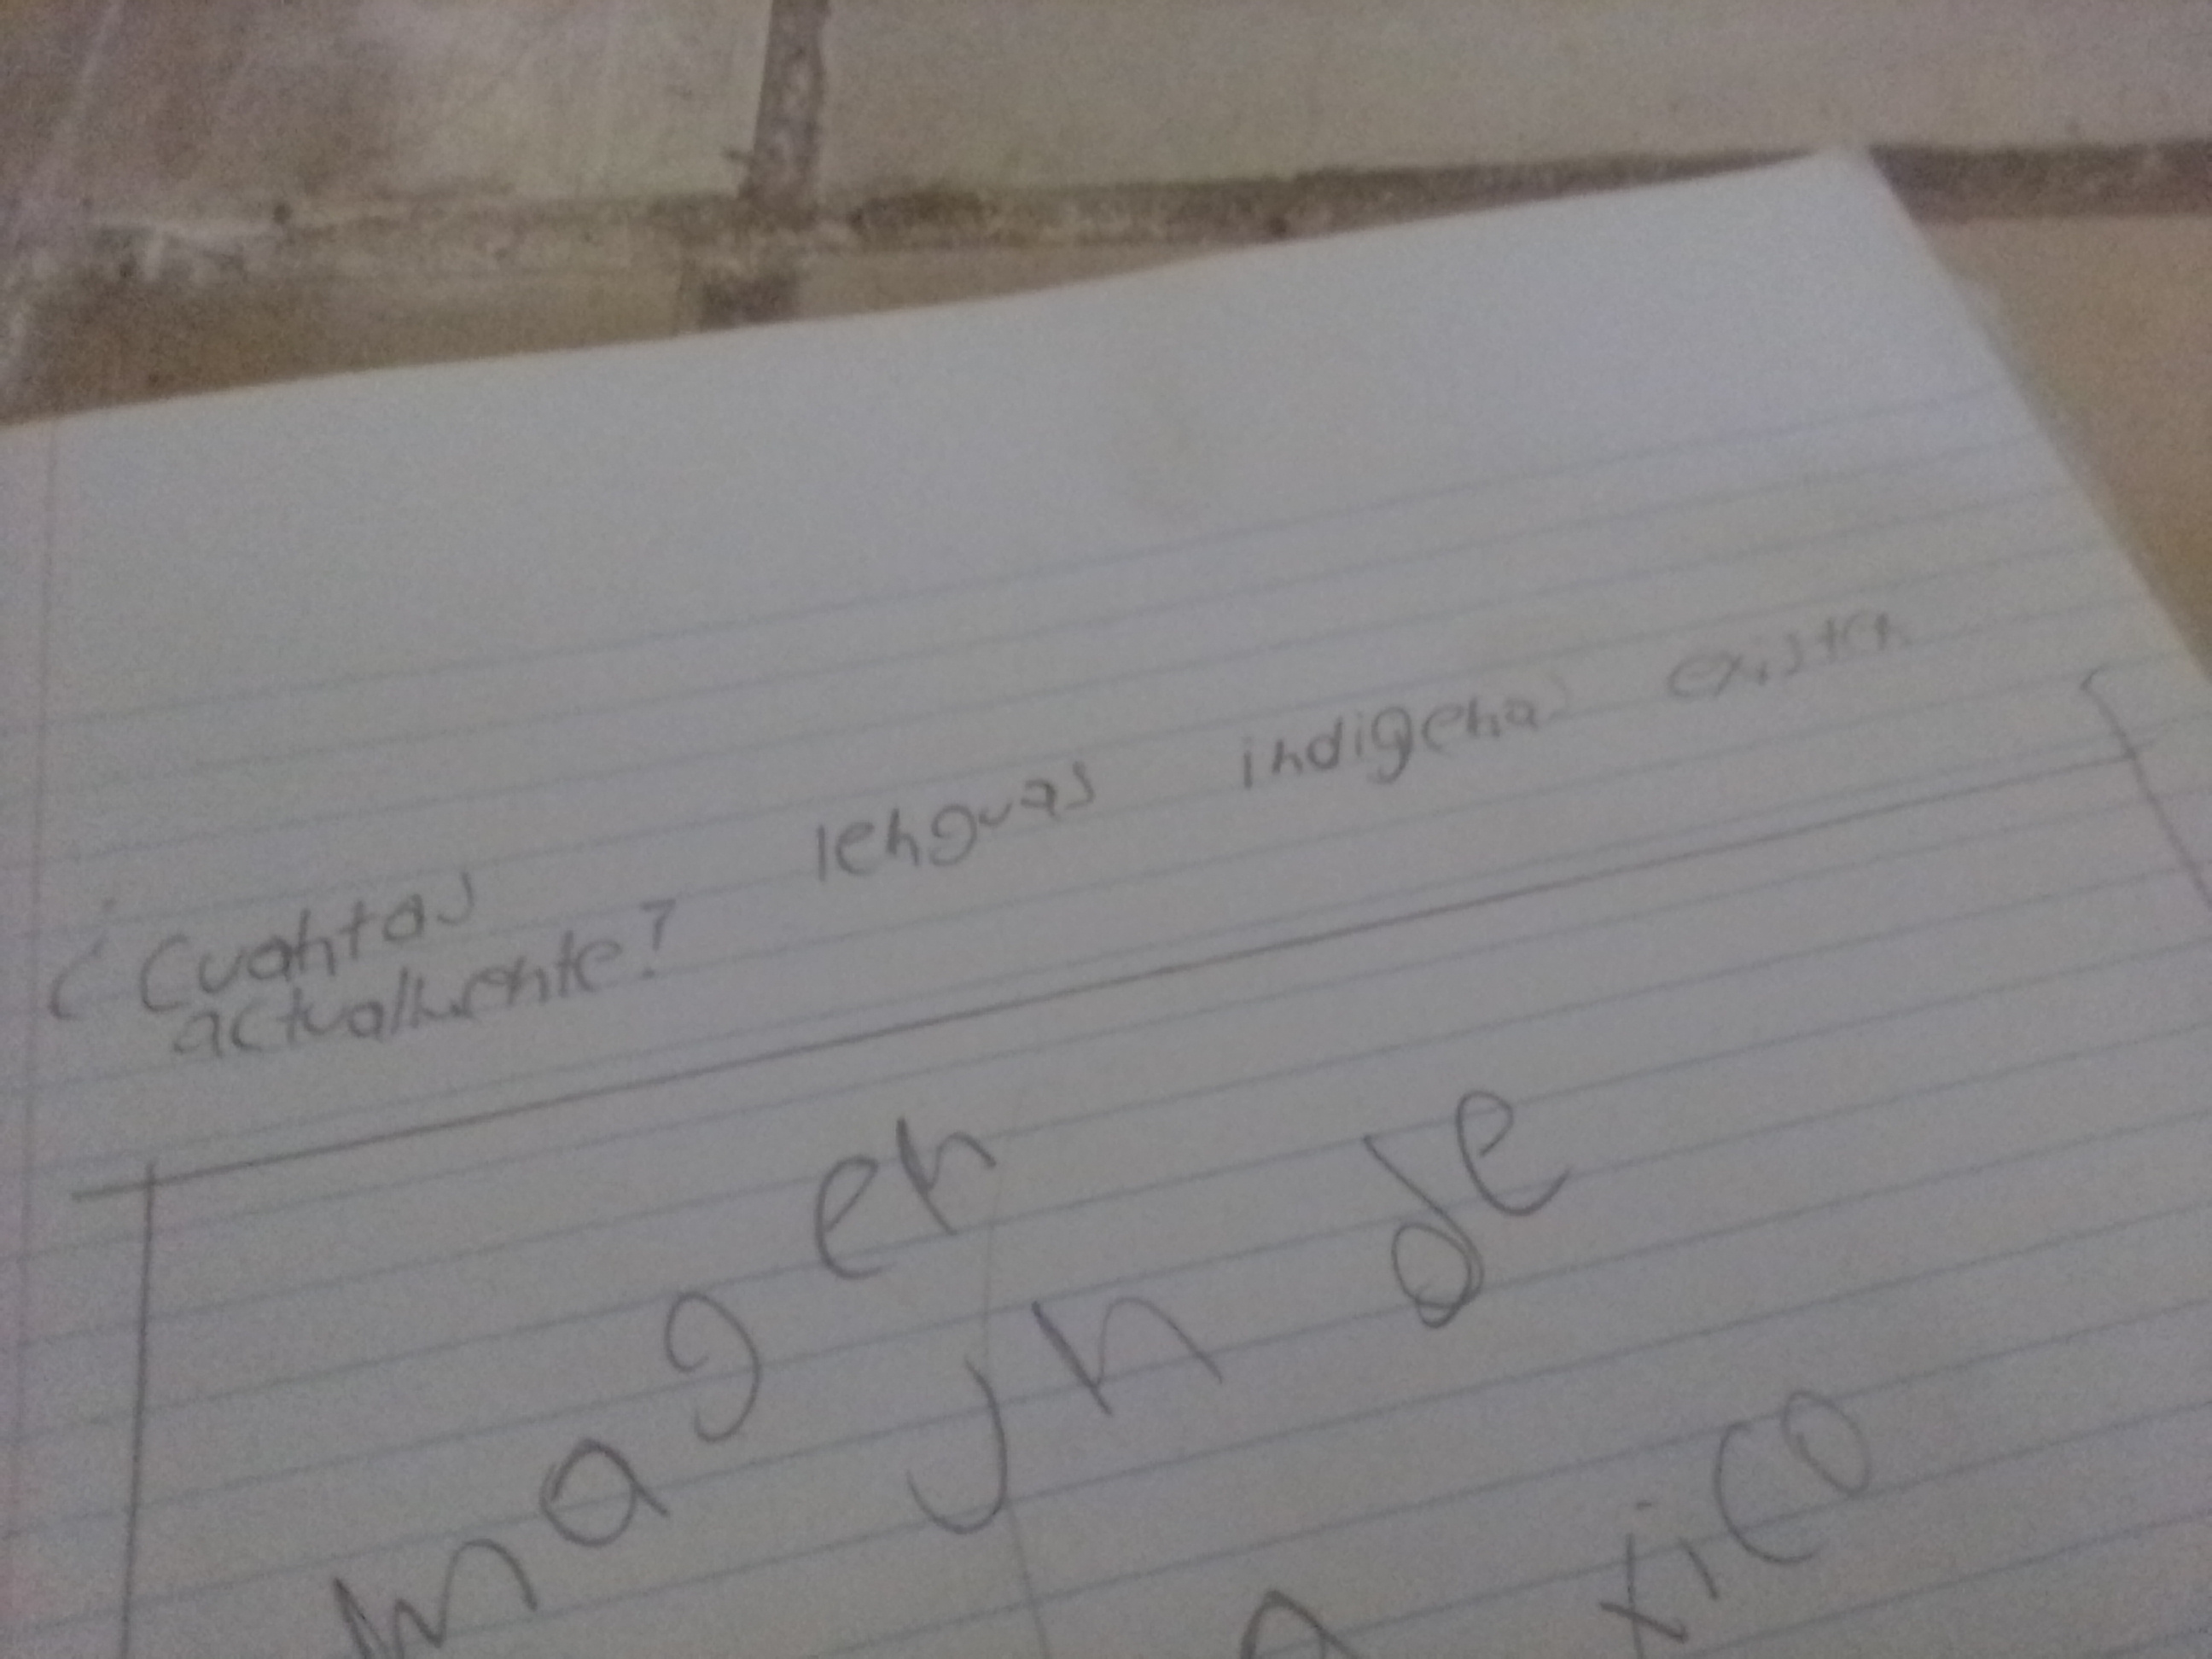 ¿Cuantas lenguas indigenas existen
actualmente?
magen
un de
xico